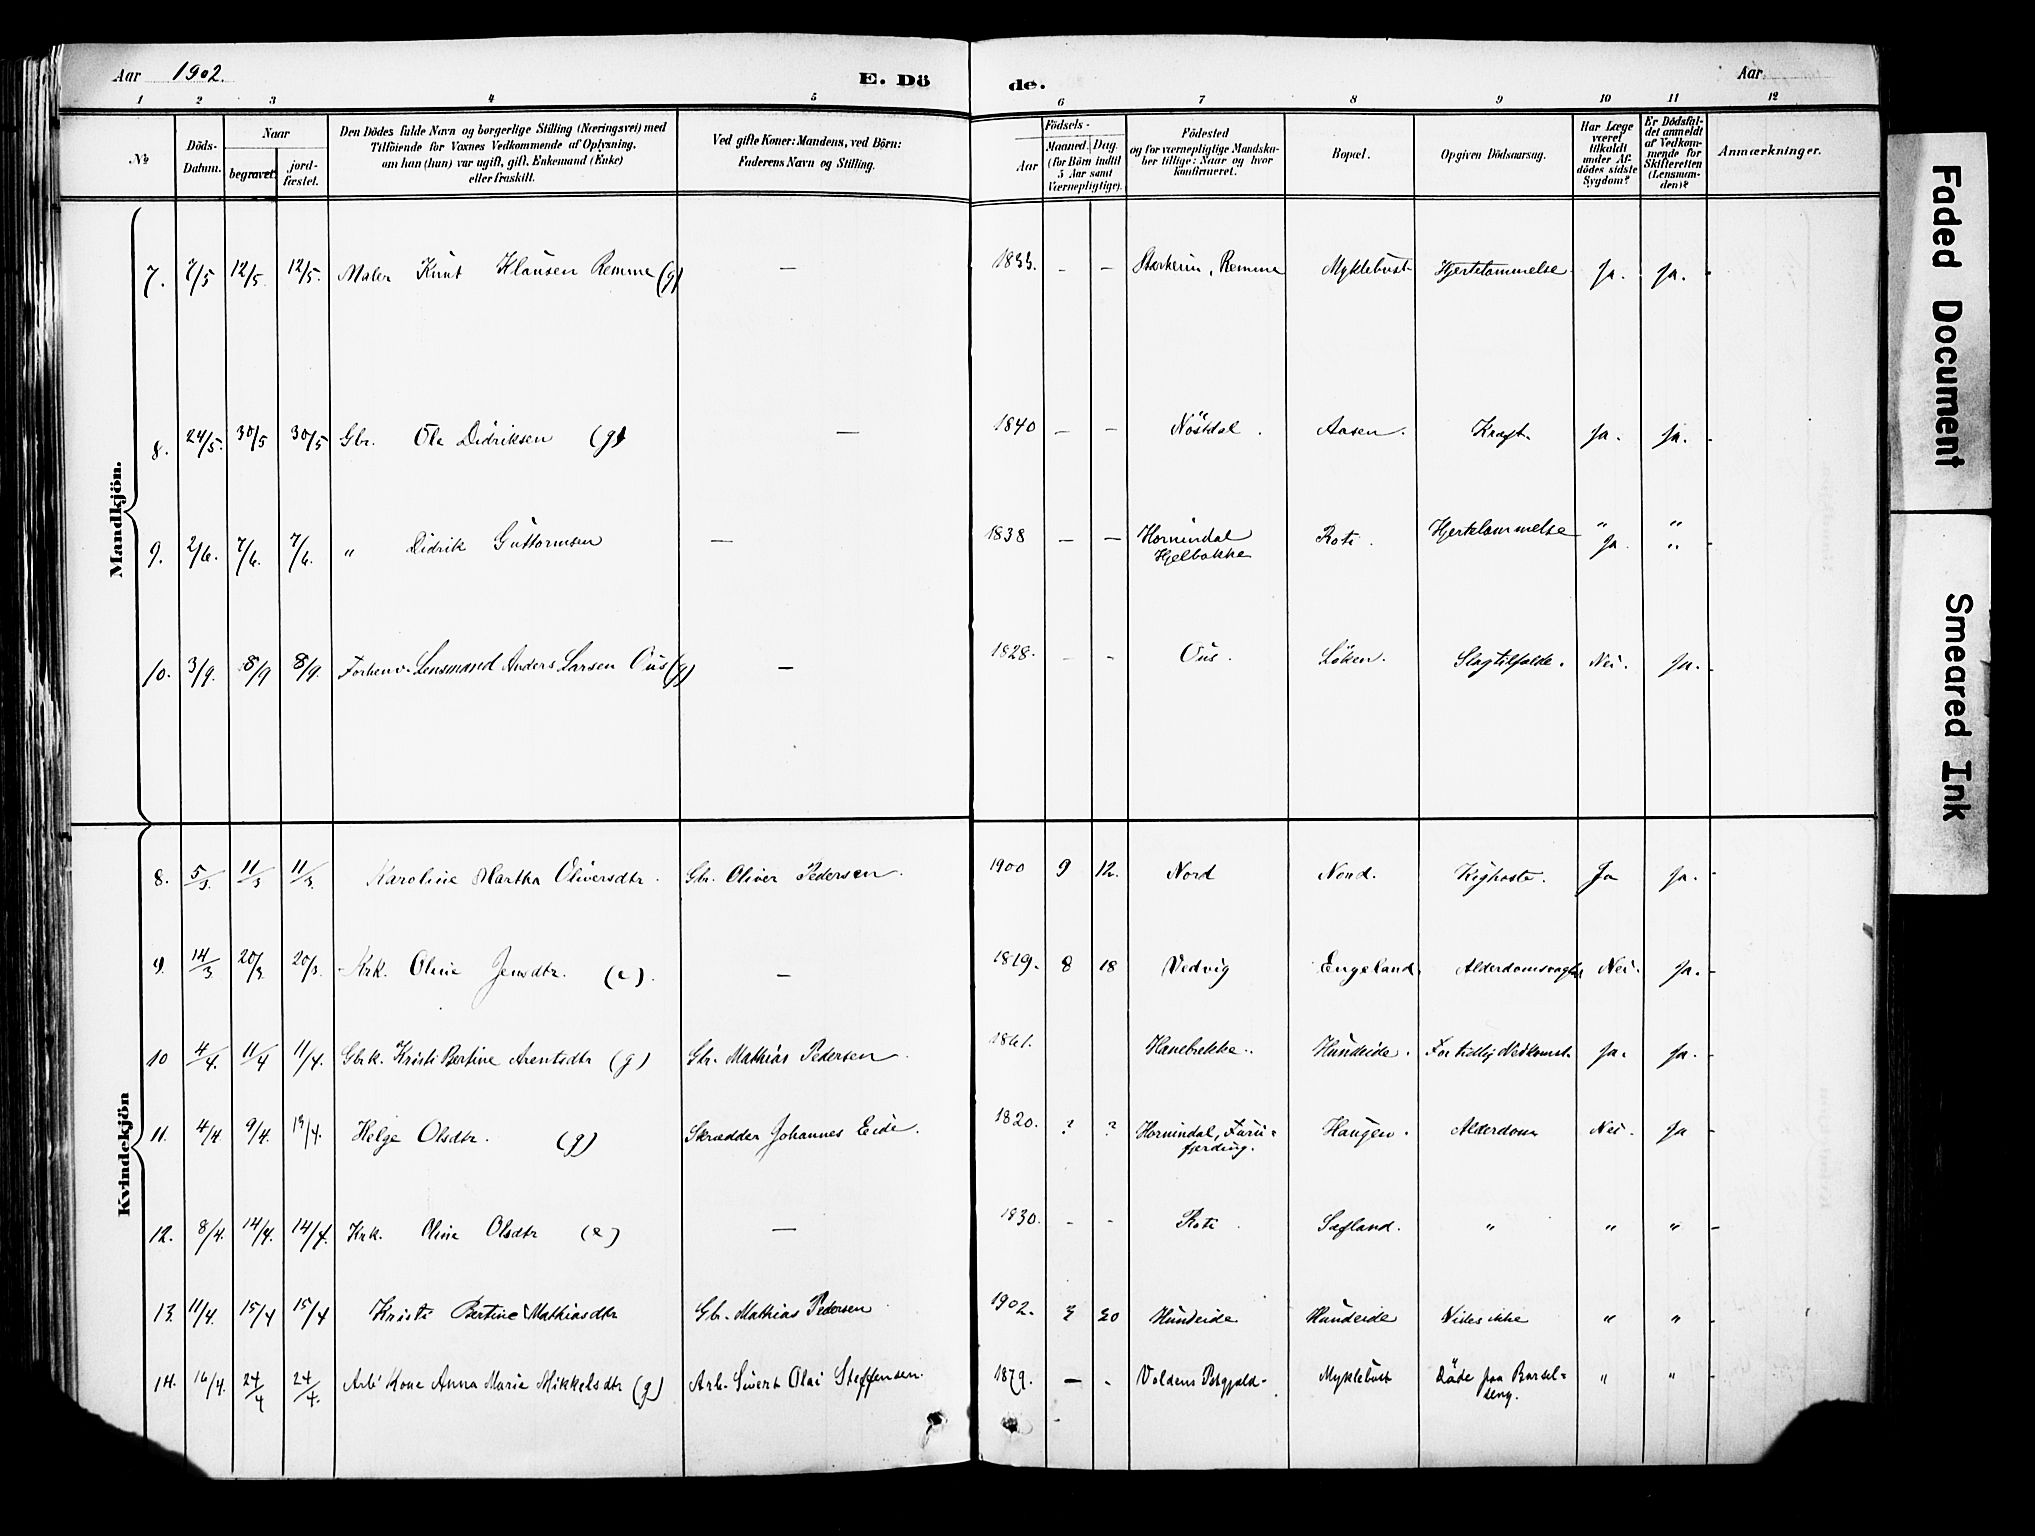 Aar 1902.
E. Dö
de.
Aar
1 2 3 4 5 6 7 8 9 10 11 12
No
Döds-Datum.
Naar
begravet.
jord-fæstet.
Den Dödes fulde Navn og borgerlige Stilling (Næringsvei) med
Tilföiende for Voxnes Vedkommende af Oplysning,
om han (hun) var ugift, gift, Enkemand (Enke)
eller fraskilt.
Ved gifte Koner: Mandens, ved Börn:
Faderens Navn og Stilling.
Födsels-
Aar
Maaned. Dag.
(for Börn indtil
5 Aar samt
Værnepligtige).
Födested
og for værnepligtige Mandska-
ber tillige: Naar og hvor
konfirmeret.
Bopæl.
Opgiven Dödsaarsag.
Har Læge
været
tilkaldt
under Af-
dödes sidste
Sygdom?
Er Dödsfal-
det anmeldt
af Vedkom-
mende for
Skifteretten
(Lensman-
den)?
Anmærkninger.
Mandkjön.
7. 7/5 12/5. 12/5. Maler Knut Klausen Remme (g) — 1833. - - Remme Myklebust Hjertelammelse. Ja. Ja. -
8. 24/5. 30/5 30/5 Gbr. Ola Didriksen (g) — 1840 - - Nöstdal. Aasen. Kræft. Ja. Ja. -
9. 2/6. 7/6. 7/6. " Didrik Guttormsen — 1838 — — Hornindal Rote. Hjertelammelse " "
Hjelbakke Ja. " -
10. 3/9. 8/9 8/9. Forhenv. Lensmand Anders Larsen Ous (g) — 1828. - - Ous. Löken. Slagtilfælde. Nei. Ja. -
Kvindekjön
8. 5/3. 11/3 11/3. Karoline Martha Oliversdtr. Gb. Oliver Pedersen. 1900 9 12. Nord Nord. Kighoste. Ja Ja. -
9. 14/3 20/3. 20/3. Krk. Oline Jensdtr. (e). — 1819. 8 18 Vedvig Engeland. Nei. Ja. -
10 4/4. 11/4 11/4. Gbrk. Kristi Bertine Arentsdtr (g) Gb. Mathias Pedersen. 1861. Hanebække. Hundeide. For tidlig Nedkomst. Ja. Ja. -
11. 4/4. 9/4. Helge Olsdtr. (g) Skrædder Johannes Eide. 1820. ? ? Hornindal, Furu= Haugen. Alderdom Nei. Ja
fjerding.
12. 8/4. 14/4. 14/4. Krk. Oline Olsdtr (e) — 1830. - - Rote. Sætland. " " " -
13. 11/4. 15/4 15/4 Kristi Bertine Mathiasdtr Gb. Mathias Pedersen 1902. 3 20 Hundeide Hundeide Vides ikke " " -
14. 16/4. 24/4 24/4. Arb. Kone Anna Marie Mikkelsdtr (g) Arb. Sivert Olai Steffensen. 1879. - - Voldens Prstgjeld. Myklebust Döde paa Barsel= " " -
seng.
Faded Document
Smeared Ink